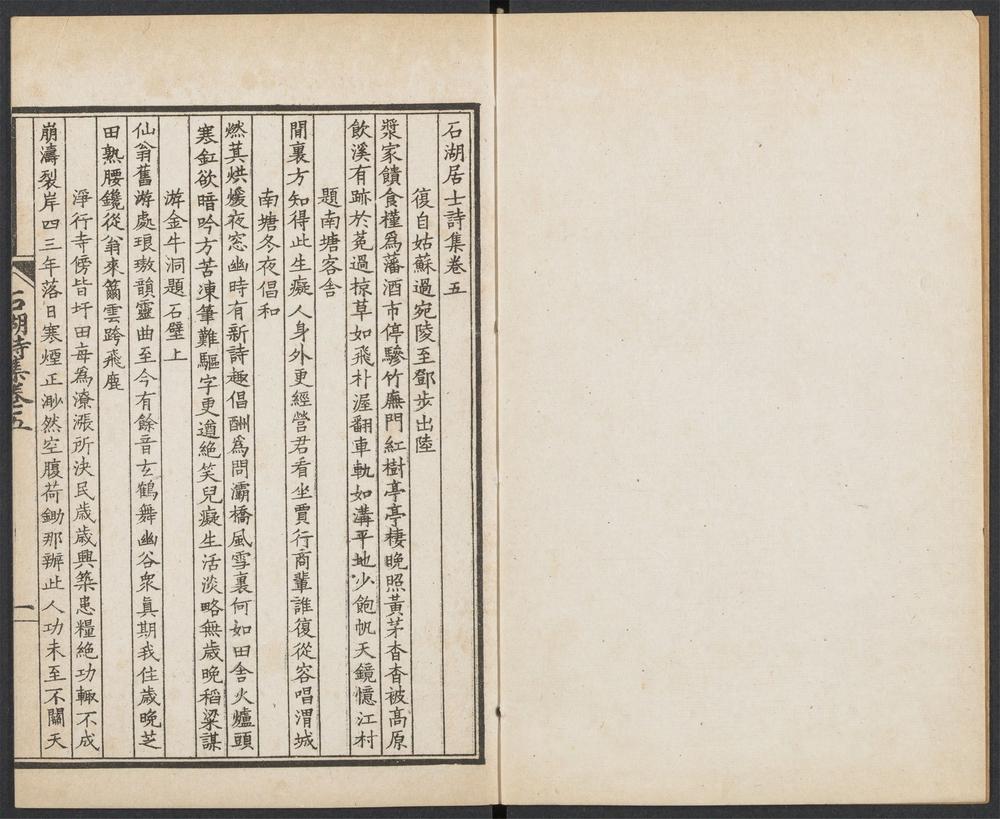 石湖居士詩集卷五
復自姑蘇過宛陵至鄧步出陸
漿家饋食槿爲藩酒市停驂竹廡門紅樹亭亭棲晚照黃茅杳杳被高原
飲溪有跡於菟過掠草如飛朴渥翻車軌如溝平地少飽帆天鏡憶江村
題南塘客舍
閒裏方知得此生癡人身外更經營君看坐賈行商輩誰復從容唱渭城
南塘冬夜倡和
燃萁烘煖夜窓幽時有新詩趣倡酬爲問灞橋風雪裏何如田舍火爐頭
寒缸欲暗吟方苦凍筆難驅字更遒絶笑兒癡生活淡略無歲晚稻粱謀
游金牛洞題石壁上
仙翁舊游處琅璈韻靈曲至今有餘音玄鶴舞幽谷衆眞期我住歲晚芝
田熟腰鑱從翁來籋雲跨飛鹿
淨行寺傍皆圩田每爲潦漲所決民歲歲興築患糧絶功輒不成
崩濤裂岸四三年落日寒煙正渺然空腹荷鋤那辦此人功未至不關天
石湖詩集卷五
一